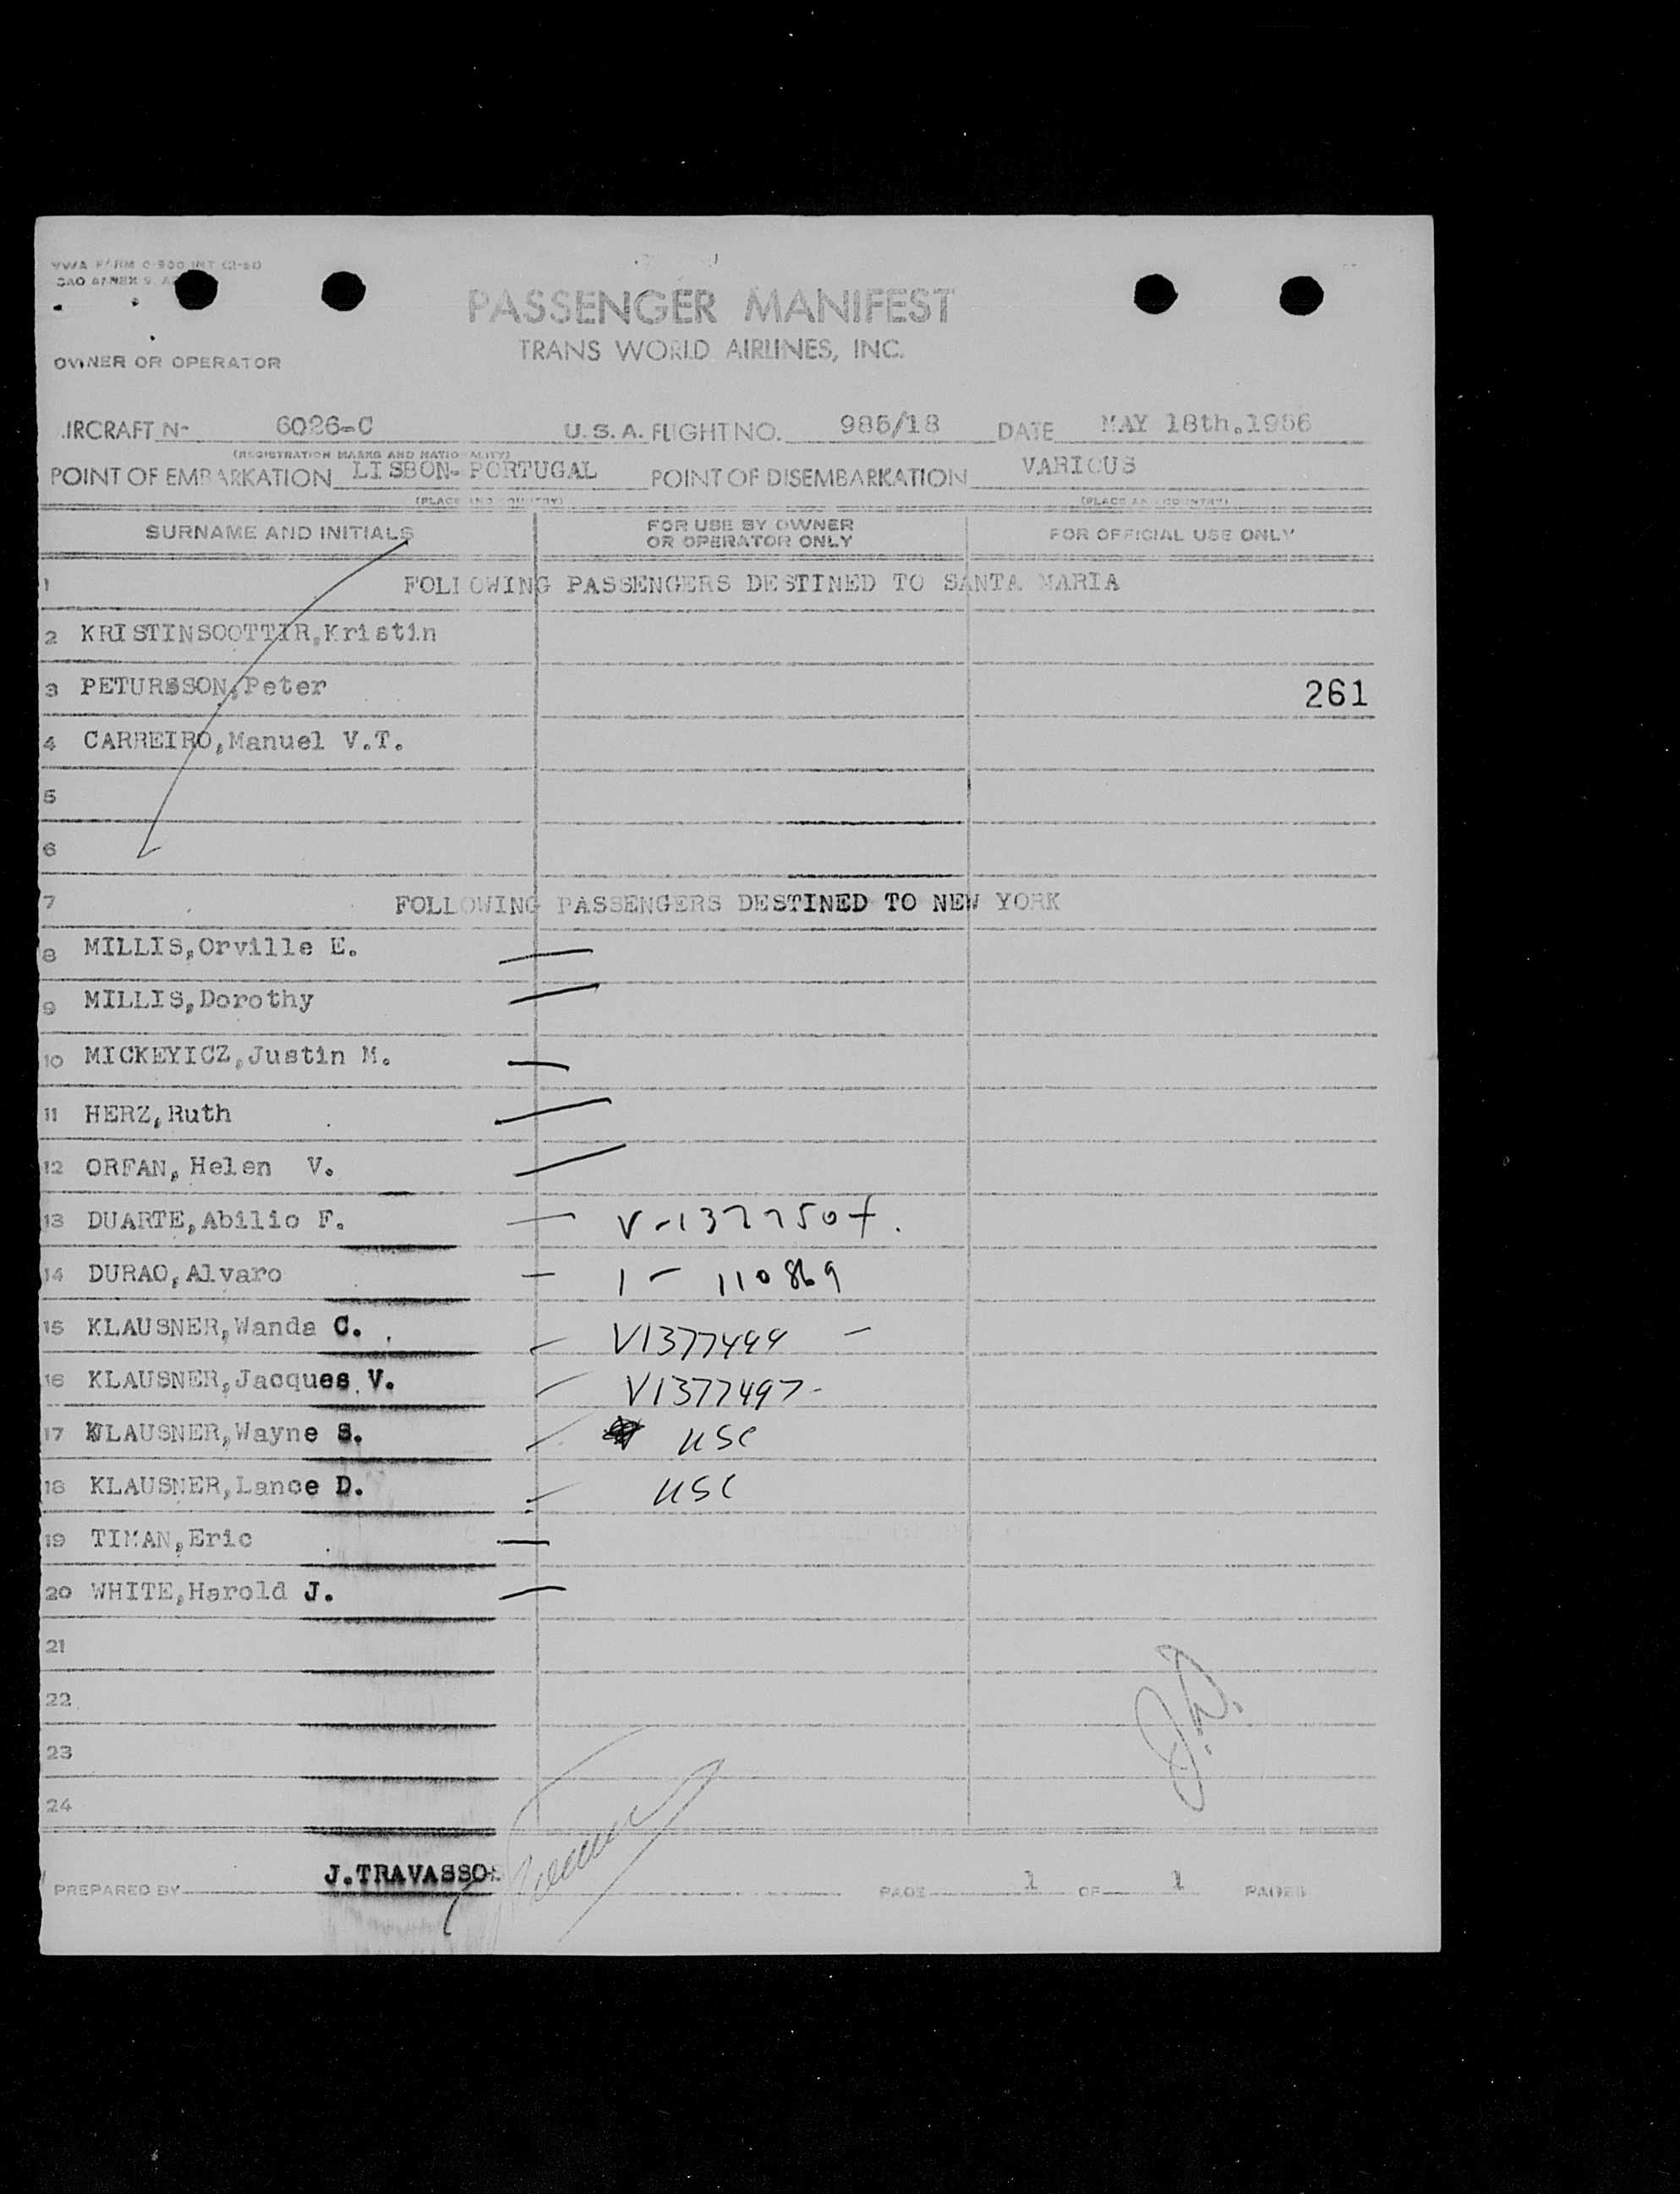 PASSENGER MANIFEST
TRANS WORLD AIRLINES, INC.
OWNER OR OPERATOR
IRCRAFT N- 6026-C U. S. A. FLIGHT NO. 985/18 DATE MAY 18th.1956
(REGISTRATION MARKS AND NATIONALITY)
POINT OF EMBARKATION LISBON- PORTUGAL POINT OF DISEMBARKATION VARIOUS
(PLACE AND COUNTRY) (PLACE AND COUNTRY)
SURNAME AND INITIALS FOR USE BY OWNER OR OPERATOR ONLY FOR OFFICIAL USE ONLY
1 FOLLOWING PASSENGERS DESTINED TO SANTA MARIA
2 KRISTINSOOTTIR,Kristin
3 PETURSSON,Peter 261
4 CARREIRO,Manuel V.T.
5
6
7 FOLLOWING PASSENGERS DESTINED TO NEW YORK
8 MILLIS,Orville E.
9 MILLIS,Dorothy
10 MICKEYICZ,Justin M.
11 HERZ,Ruth
12 ORFAN, Helen V.
13 DUARTE,Abilio F. —
14 DURAO,Alvaro — 1 - 110869
15 KLAUSNER,Wanda C. — V1377499 —
16 KLAUSNER,Jacques V. — V1377497-
17 KLAUSNER,Wayne S. — USC
18 KLAUSNER,Lance D. — USC
19 TIMAN,Eric —
20 WHITE,Harold J. —
21
22
23
24
PREPARED BY J.TRAVASSOS PAGE 1 OF 1 PAGES